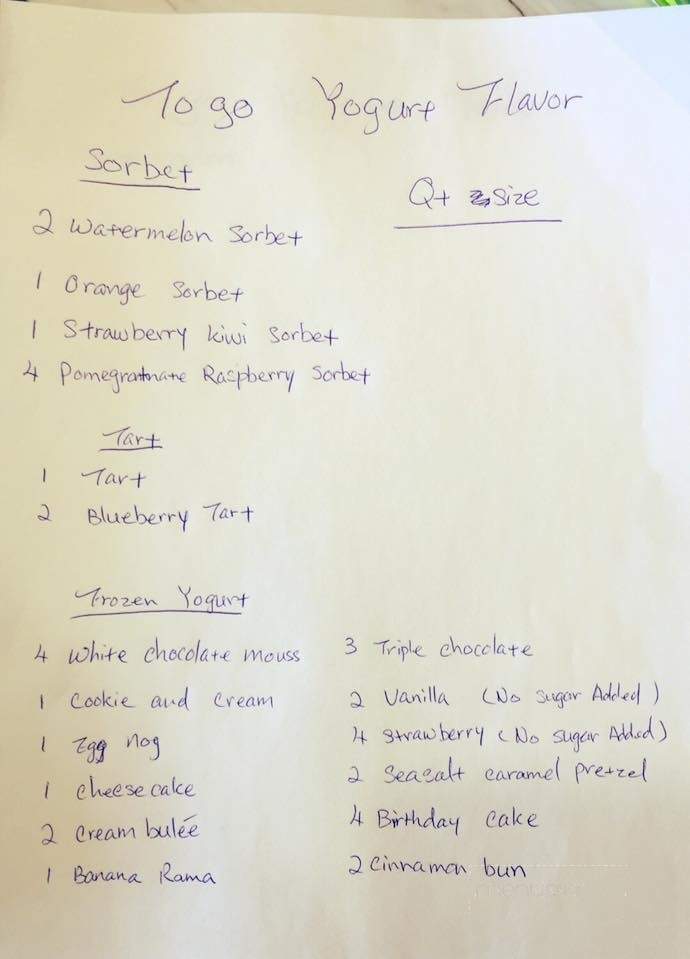 To go Yogurt Flavor
Sorbet
Qt size
2 Watermelon Sorbet
1 Orange Sorbet
1 Strawberry kiwi Sorbet
4 Pomegratnate Raspberry Sorbet
Tart
1 Tart
2 Blueberry Tart
Frozen Yogurt
4 White chocolate mouss
1 Cookie and cream
1 Egg nog
1 cheese cake
2 cream buleé
1 Banana Rama
3 Triple chocolate
2 Vanilla (No sugar Added)
4 Strawberry (No sugar Added)
2 Seasalt caramel pretzel
4 Birthday cake
2 Cinnamon bun